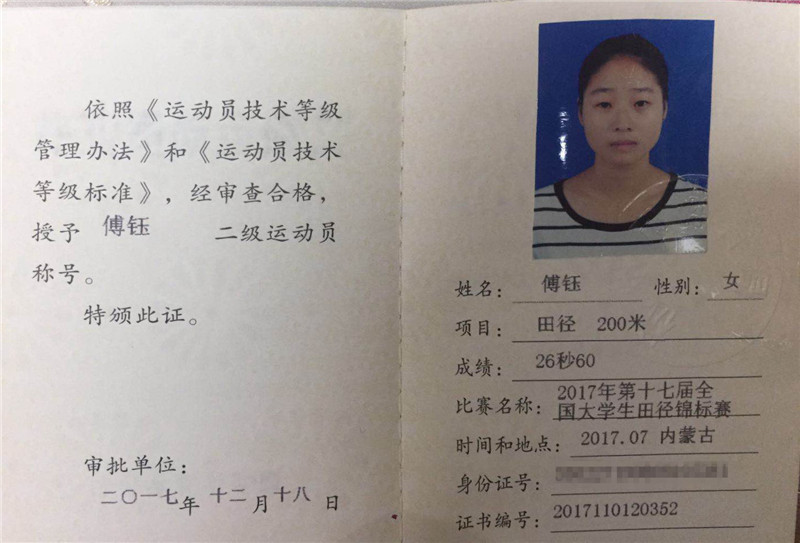 依照《运动员技术等级
管理办法》和《运动员技术
等级标准》，经审查合格，
授予 傅钰 二级运动员
称号。
特颁此证。
审批单位：
二〇一七年 十二月十八日
姓名： 傅钰 性别： 女
项目： 田径 200米
成绩： 26秒60
比赛名称： 2017年第十七届全
国大学生田径锦标赛
时间和地点： 2017.07 内蒙古
身份证号：
证书编号： 2017110120352